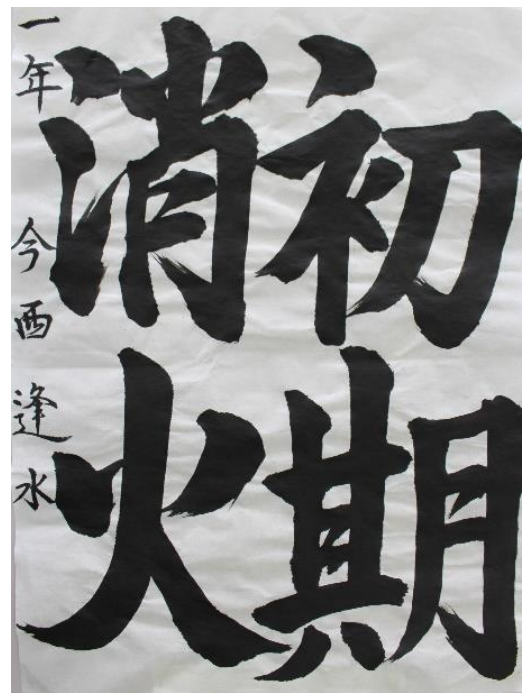 初期
消火
一年 今西逢水